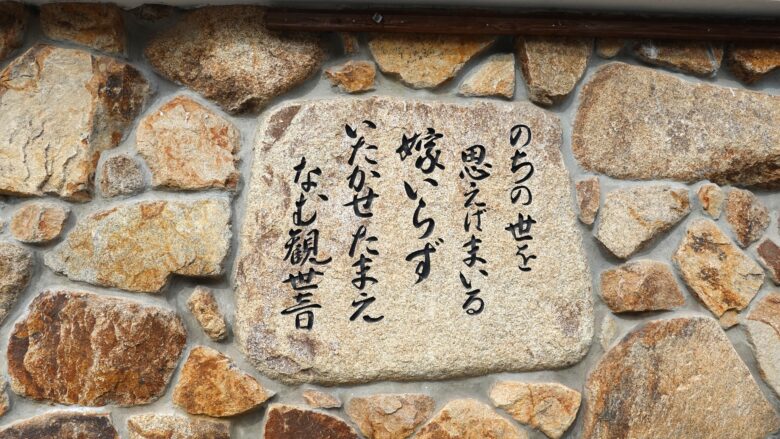 のち の 世を
思えばまいる
嫁いらず
いたかせたまえ
なむ観世音